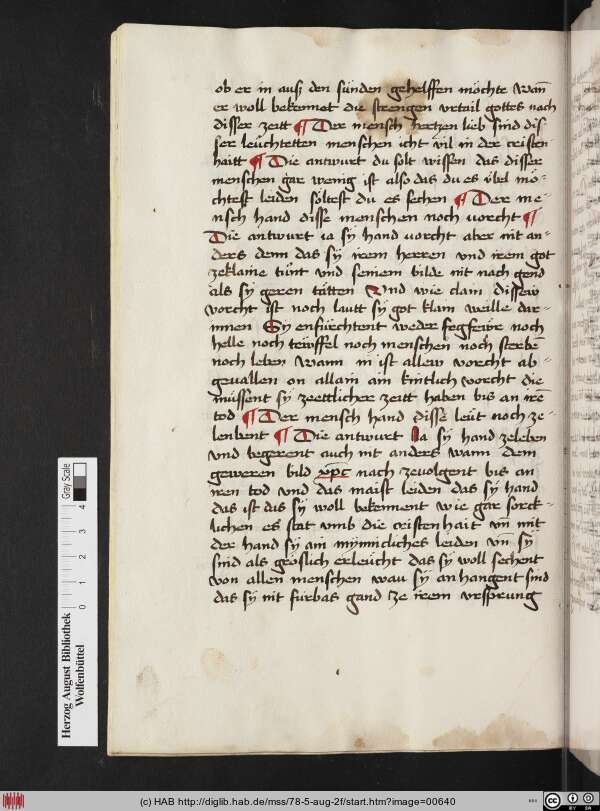 ob er in auß den sünden gehelffen möchte Wañ
er woll bekennet die strengen vrtail gottes nach
disser zeitt ¶ Der mensch hertzen lieb sind dis-
ser leüchtetten menschen icht vil in der cristen
haitt ¶ Die antwurt du solt wissen das disser
menschen gar wenig ist also das du es v̈bel mö-
chtest leiden soltest du es sechen ¶ Der me-
nsch hand disse menschen noch vorcht ¶
Die antwurt ia sÿ hand vorcht aber nit an-
ders denn das sÿ irem herren vnd iren got
zeklaine tůnt vnd seinem bilde nit nach gend
als sÿ geren tätten Vnd wie clain dissew
vorcht ist noch lautt sÿ got klain weille dar-
innen Sÿ enfürchtent weder fegfeẅr noch
helle noch teẅffel noch menschen noch sterbē
noch leben Wann in ist allew vorcht ab-
geuallen on allain ain kintlich vorcht die
müssent sÿ zeettlicher zeitt haben bis an irē
tod ¶ Der mensch hand disse leüt noch ze-
lenbent ¶ Die antwurt Ja sÿ hand zeleben
vnd begerent auch nit anders wann dem
geweren bild xp̄c nach zeuolgent bis an
iren tod vnd das maist leiden das sÿ hand
das ist das sÿ woll bekennent wie gar sorck-
lichen es stat vmb die cristenhait vñ mit
der hand sÿ ain mÿnnicliches leiden vñ sÿ
sind als gröslich erleücht das sÿ woll sechent
von allen menschen wau sÿ an hangent sind
das sÿ nit fürbas gand ze irem vrsprung
Herzog August Bibliothek
Wolfenbüttel
0 1 2 3 4
Gray Scale
(c) HAB http://diglib.hab.de/mss/78-5-aug-2f/start.htm?image=00640
cc BY SA